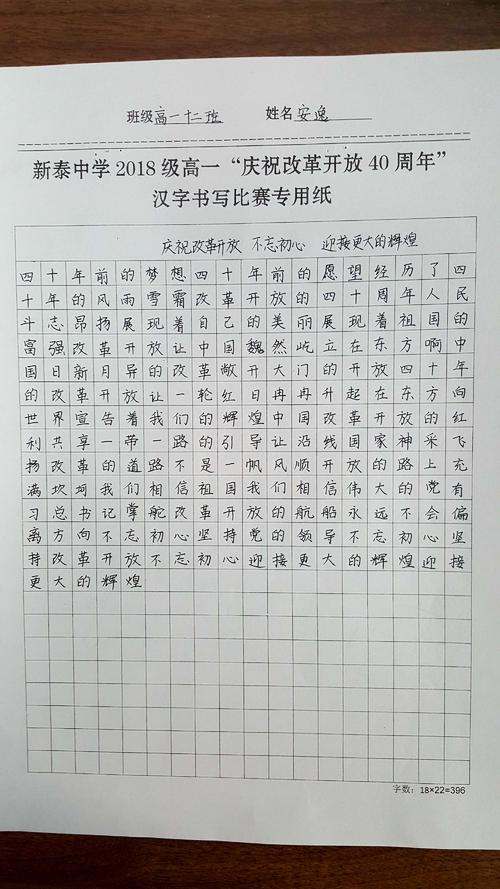 班级高一十二班 姓名安逸
新泰中学2018级高一“庆祝改革开放40周年”
汉字书写比赛专用纸
庆祝改革开放 不忘初心 迎接更大的辉煌
四十年前的梦想四十年前的愿望经历了四
十年的风雨雪霜改革开放的四十周年人民
斗志昂扬展现着自己的美丽展现着祖国的
富强改革开放让中国巍然屹立在东方啊中
国日新月异的改革敞开大门的开放四十年
的改革开放让一轮红日冉冉升起在东方向
世界宣告着我们的辉煌中国改革开放的红
利共享一带一路的引导让沿线国家神采飞
扬改革的道路不是一帆风顺开放的路上充
满坎坷我们相信祖国我们相信伟大的党有
习总书记掌舵改革开放的航船永远不会偏
离方向不忘初心坚持党的领导不忘初心坚
持改革开放不忘初心迎接更大的辉煌迎接
更大的辉煌
字数：18×22=396